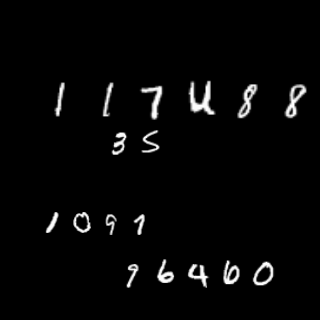 117488
35
1097
96460